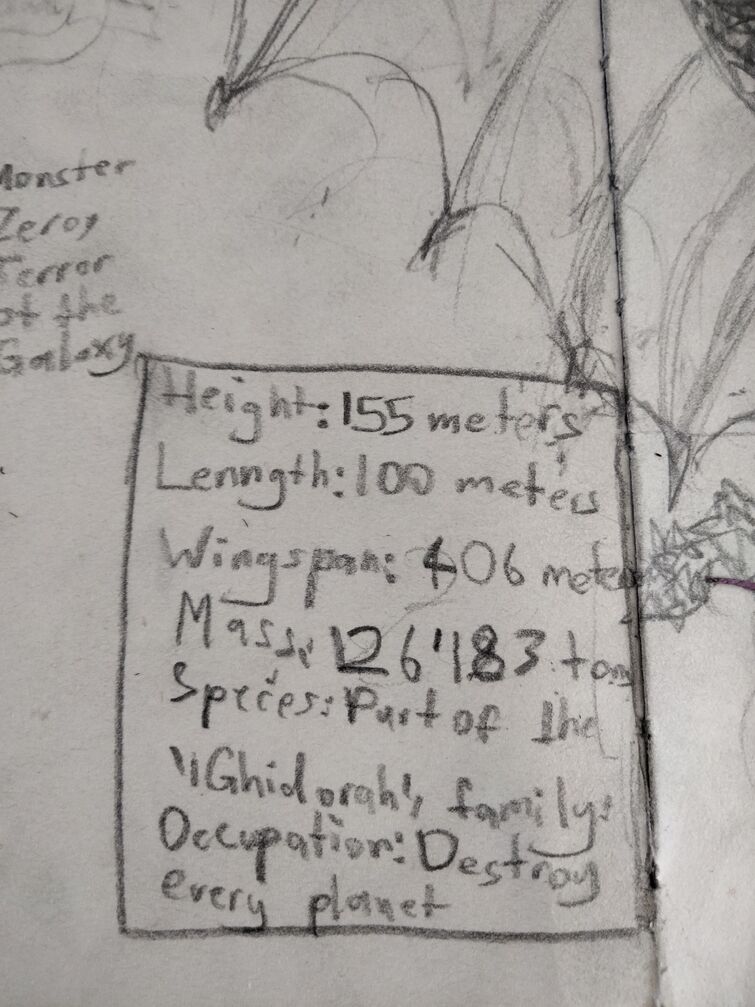 Monster
Zeroy
Terror
of the
Galaxy
Height: 155 meters
Lenngth: 100 meters
Wingspan: 406 meters
Mass: 126'183 tons
Species: Part of the
"Ghidorah", family:
Occupation: Destroy
every planet